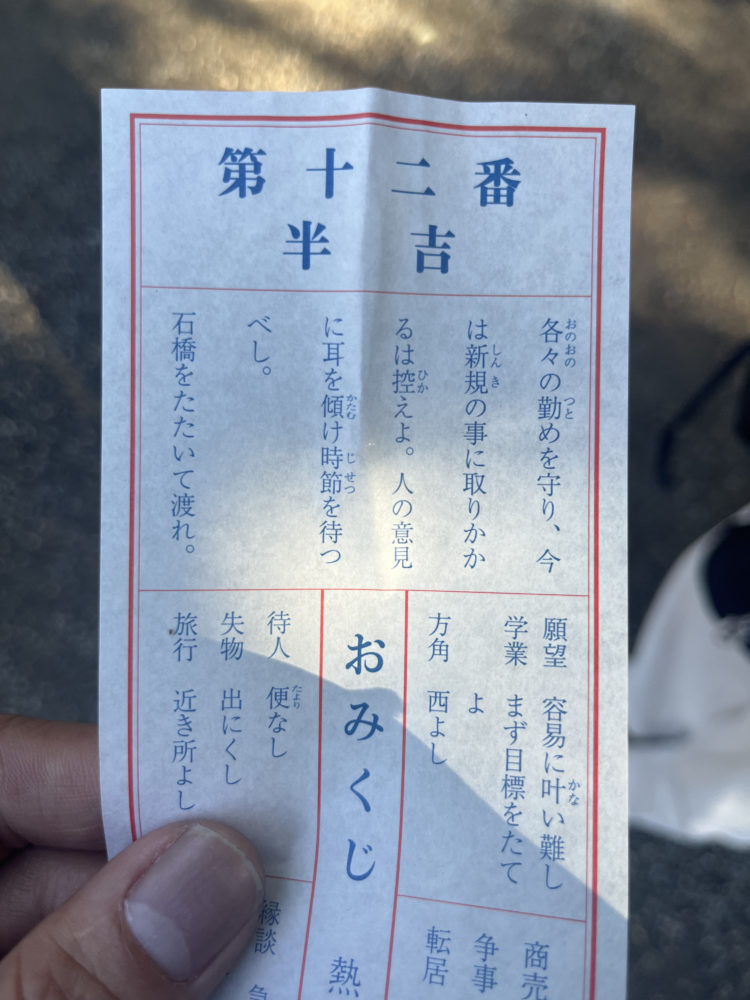 第十二番
半吉
各々の勤めを守り、今
は新規の事に取りかか
るは控えよ。人の意見
に耳を傾け時節を待つ
べし。
石橋をたたいて渡れ。
願望 容易に叶い難し
学業 まず目標をたて
よ
方角 西よし
おみくじ
熱
待人 便なし
失物 出にくし
旅行 近き所よし
商売
争事
転居
縁談